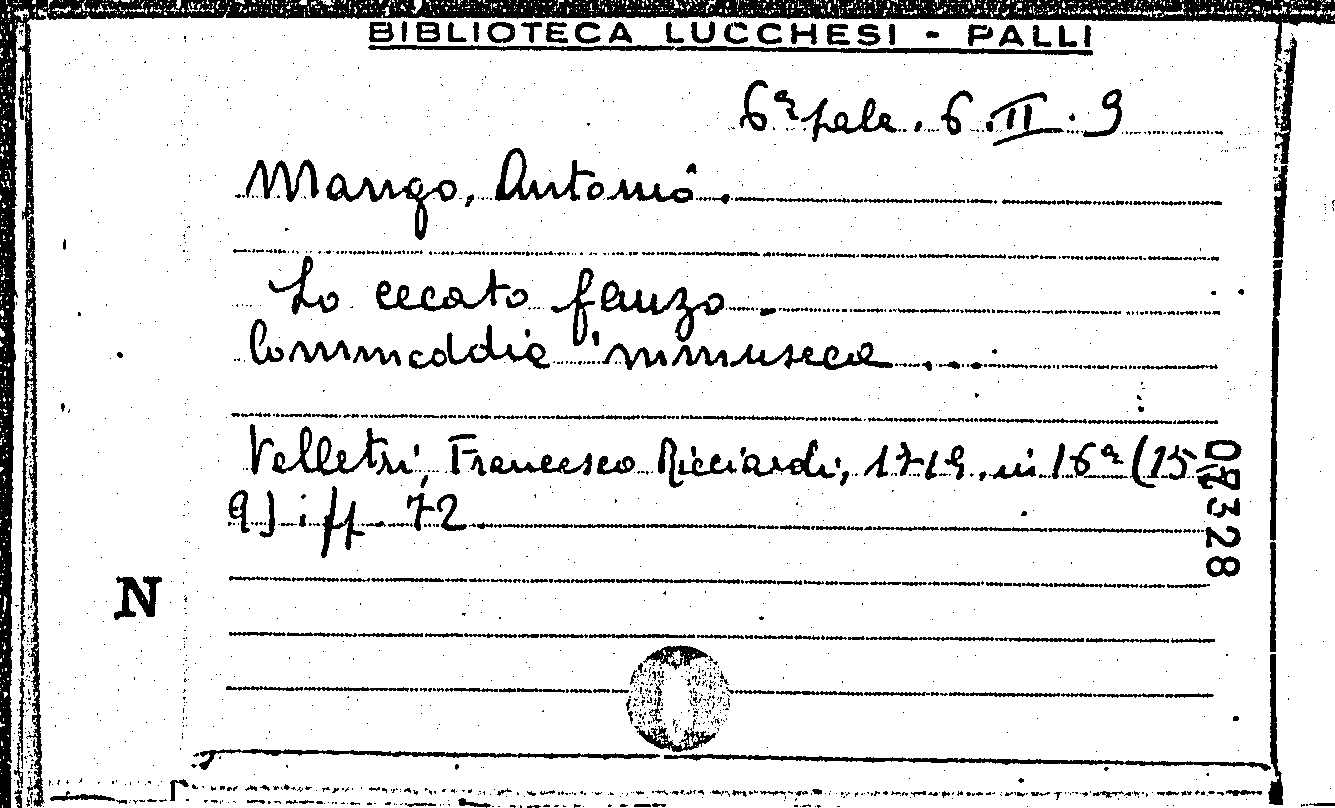 BIBLIOTECA LUCCHESI - PALLI
6ª sala. 6. II. 9
Mango, Antonio.
Lo cecato fauzo.
Commeddia 'mmuseca ...
Velletri, Francesco Ricciardi, 1719, in 16º (15
9) ; pp. 72.
07328
N